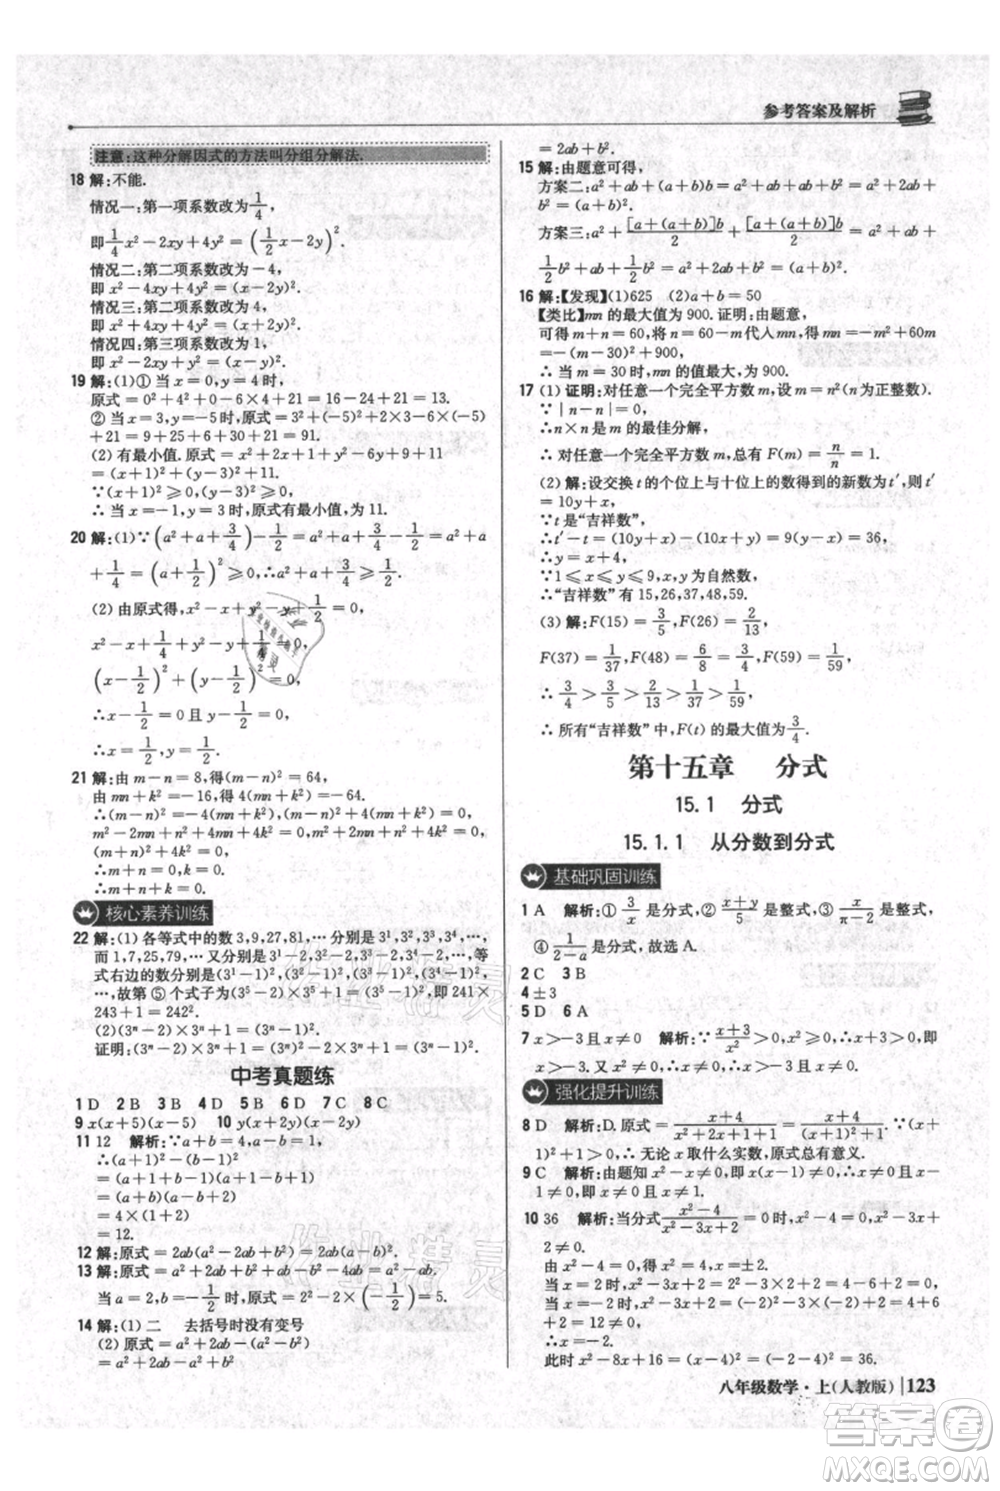 参考答案及解析
注意:这种分解因式的方法叫分组分解法.
18 解:不能.
情况一:第一项系数改为1/4,
即1/4x²-2xy+4y²=(1/2x-2y)².
情况二:第二项系数改为-4,
即 x²-4xy+4y²=(x-2y)².
情况三:第二项系数改为 4,
即 x²+4xy+4y²=(x+2y)².
情况四:第三项系数改为 1,
即 x²-2xy+y²=(x-y)².
19 解:(1)① 当 x=0, y=4 时,
原式=0²+4²+2×0-6×4+21=16-24+21=13.
② 当 x=3,y=-5 时,原式=3²+(-5)²+2×3-6×(-5)
+21=9+25+6+30+21=91.
(2) 有最小值. 原式=x²+2x+1+y²-6y+9+11
=(x+1)²+(y-3)²+11.
∵(x+1)²⩾0,(y-3)²⩾0,
∴ 当 x=-1,y=3 时,原式有最小值,为 11.
20 解:(1)∵(a²+a+3/4)-1/2=a²+a+3/4-1/2=a²+a
+1/4=(a+1/2)²⩾0,∴a²+a+3/4⩾1/2.
(2) 由原式得,x²-x+1/4+y²-y+1/4=0
(x-1/2)²+(y-1/2)²=0
∴x-1/2=0,y-1/2=0,
∴x=1/2,y=1/2.
21 解:由 m-n=8,可得(m-n)²=64,
由 mn+k²=-16,可得 4(mn+k²)=-64.
∴(m-n)²+4(mn+k²)=64-64=0.
m²-2mn+n²+4mn+4k²=0,
m²+2mn+n²+4k²=0,(m+n)²+4k²=0.
∴m+n=0.
核心素养训练
22 解:(1) 各等式中的数 3,9,27,81,…分别是 3¹,3²,3³,3⁴,…,
而 1,7,25,79,…又分别是 3¹-2,3²-2,3³-2,3⁴-2,…,等
式右边的数分别是(3¹-1)²,(3²-1)²,(3³-1)²,(3⁴-1)²,
…,故第 ⑤ 个式子为(3⁵-2)×3⁵+1=(3⁵-1)²,即 241×
243+1=242².
(2)(3ⁿ-2)×3ⁿ+1=(3ⁿ-1)².
证明:(3ⁿ-2)×3ⁿ+1=(3ⁿ)²-2×3ⁿ+1=(3ⁿ-1)².
中考真题练
1 D 2 B 3 B 4 C 5 D 6 C 7 C 8 C
9 x(x+5)(x-5) 10 y(x+2y)(x-2y)
11 12 解析:∵a+b=4,a-b=1,
∴(a+1)²-(b-1)²
=(a+1+b-1)(a+1-b+1)
=(a+b)(a-b+2)
=4×(1+2)
=12.
12 解:原式=2ab(a²-2ab+b²)=2ab(a-b)².
13 解:原式=a²+2ab+b²-b²=a²+2ab.
当 a=2,b=-1/2时,原式=2²+2×2×(-1/2)=2.
14 解:(1) 二 去括号时没有变号
(2) 原式=a²+2ab-(a²-b²)
=a²+2ab-a²+b²
=2ab+b².
15 解:由题意可得,
方案二:a²+ab+(a+b)b=a²+ab+ab+b²=a²+2ab+
b²=(a+b)²,
方案三:a²+[a+(a+b)]b/2+[a+(a+b)]b/2=a²+ab+
1/2b²+ab+1/2b²=a²+2ab+b²=(a+b)².
16 解:【发现】(1)625 (2)a+b=50
【类比】mn 的最大值为 900. 证明:由题意,
可得 m+n=60,将 n=60-m代入 mn,得 mn=-m²+
60m=-(m-30)²+900,
∴ 当 m=30 时,mn 的值最大,为 900.
17 (1) 证明:对任意一个完全平方数 m,设 m=n²(n 为正整数).
∵|n-n|=0,
∴n×n 是 m 的最佳分解,
∴ 对任意一个完全平方数 m,总有 F(m)=n/n=1.
(2) 解:设交换 t 的个位上与十位上的数得到的新数为 t′,则 t′
=10y+x,
∵t 是“吉祥数”,
∴t′-t=(10y+x)-(10x+y)=9(y-x)=36,
∴y=x+4,
∵1⩽x⩽y⩽9,x,y 为自然数,
∴“吉祥数”有 15,26,37,48,59.
(3) 解:F(15)=3/5,F(26)=2/13,
F(37)=1/37,F(48)=6/8=3/4,F(59)=1/59.
∵3/4>3/5>2/13>1/37>1/59,
∴ 所有“吉祥数”中,F(t) 的最大值为3/4.
第十五章 分式
15.1 分式
15.1.1 从分数到分式
基础巩固训练
1 A 解析:①3/x是分式,②(x+y)/5是整式,③x/(π-2)是整式,
④1/(a-1)是分式,故选 A.
2 C 3 B
4 ±3
5 D 6 A
7 x>-3 且 x≠0 解析:∵(x+3)/x²>0,x²≠0,∴x+3>0,即
x>-3. 又∵x²≠0,即 x≠0,∴x>-3 且 x≠0.
强化提升训练
8 D 解析:D. 原式=(x+4)/(x²+2x+1+1)=(x+4)/((x+1)²+1),∵(x+
1)²+1>0,∴无论 x 取什么实数,原式总有意义.
9 C 解析:由题知 x²-x≠0,即 x(x-1)≠0,即 x≠0 且 x≠1.
10 36 解析:当分式(x²-4)/(x²-x-2)=0时,x²-4=0且x²-x-
2≠0.
由 x²-4=0,得 x²=4,∴x=±2.
当 x=2 时,x²-x-2=2²-2-2=0;
当 x=-2 时,x²-x-2=(-2)²-(-2)-2=4≠0.
∴x=-2.
此时 x²-16x=(-2)²-16×(-2)=36.
八年级数学·上(人教版) 123
答案卷
MXQE.COM